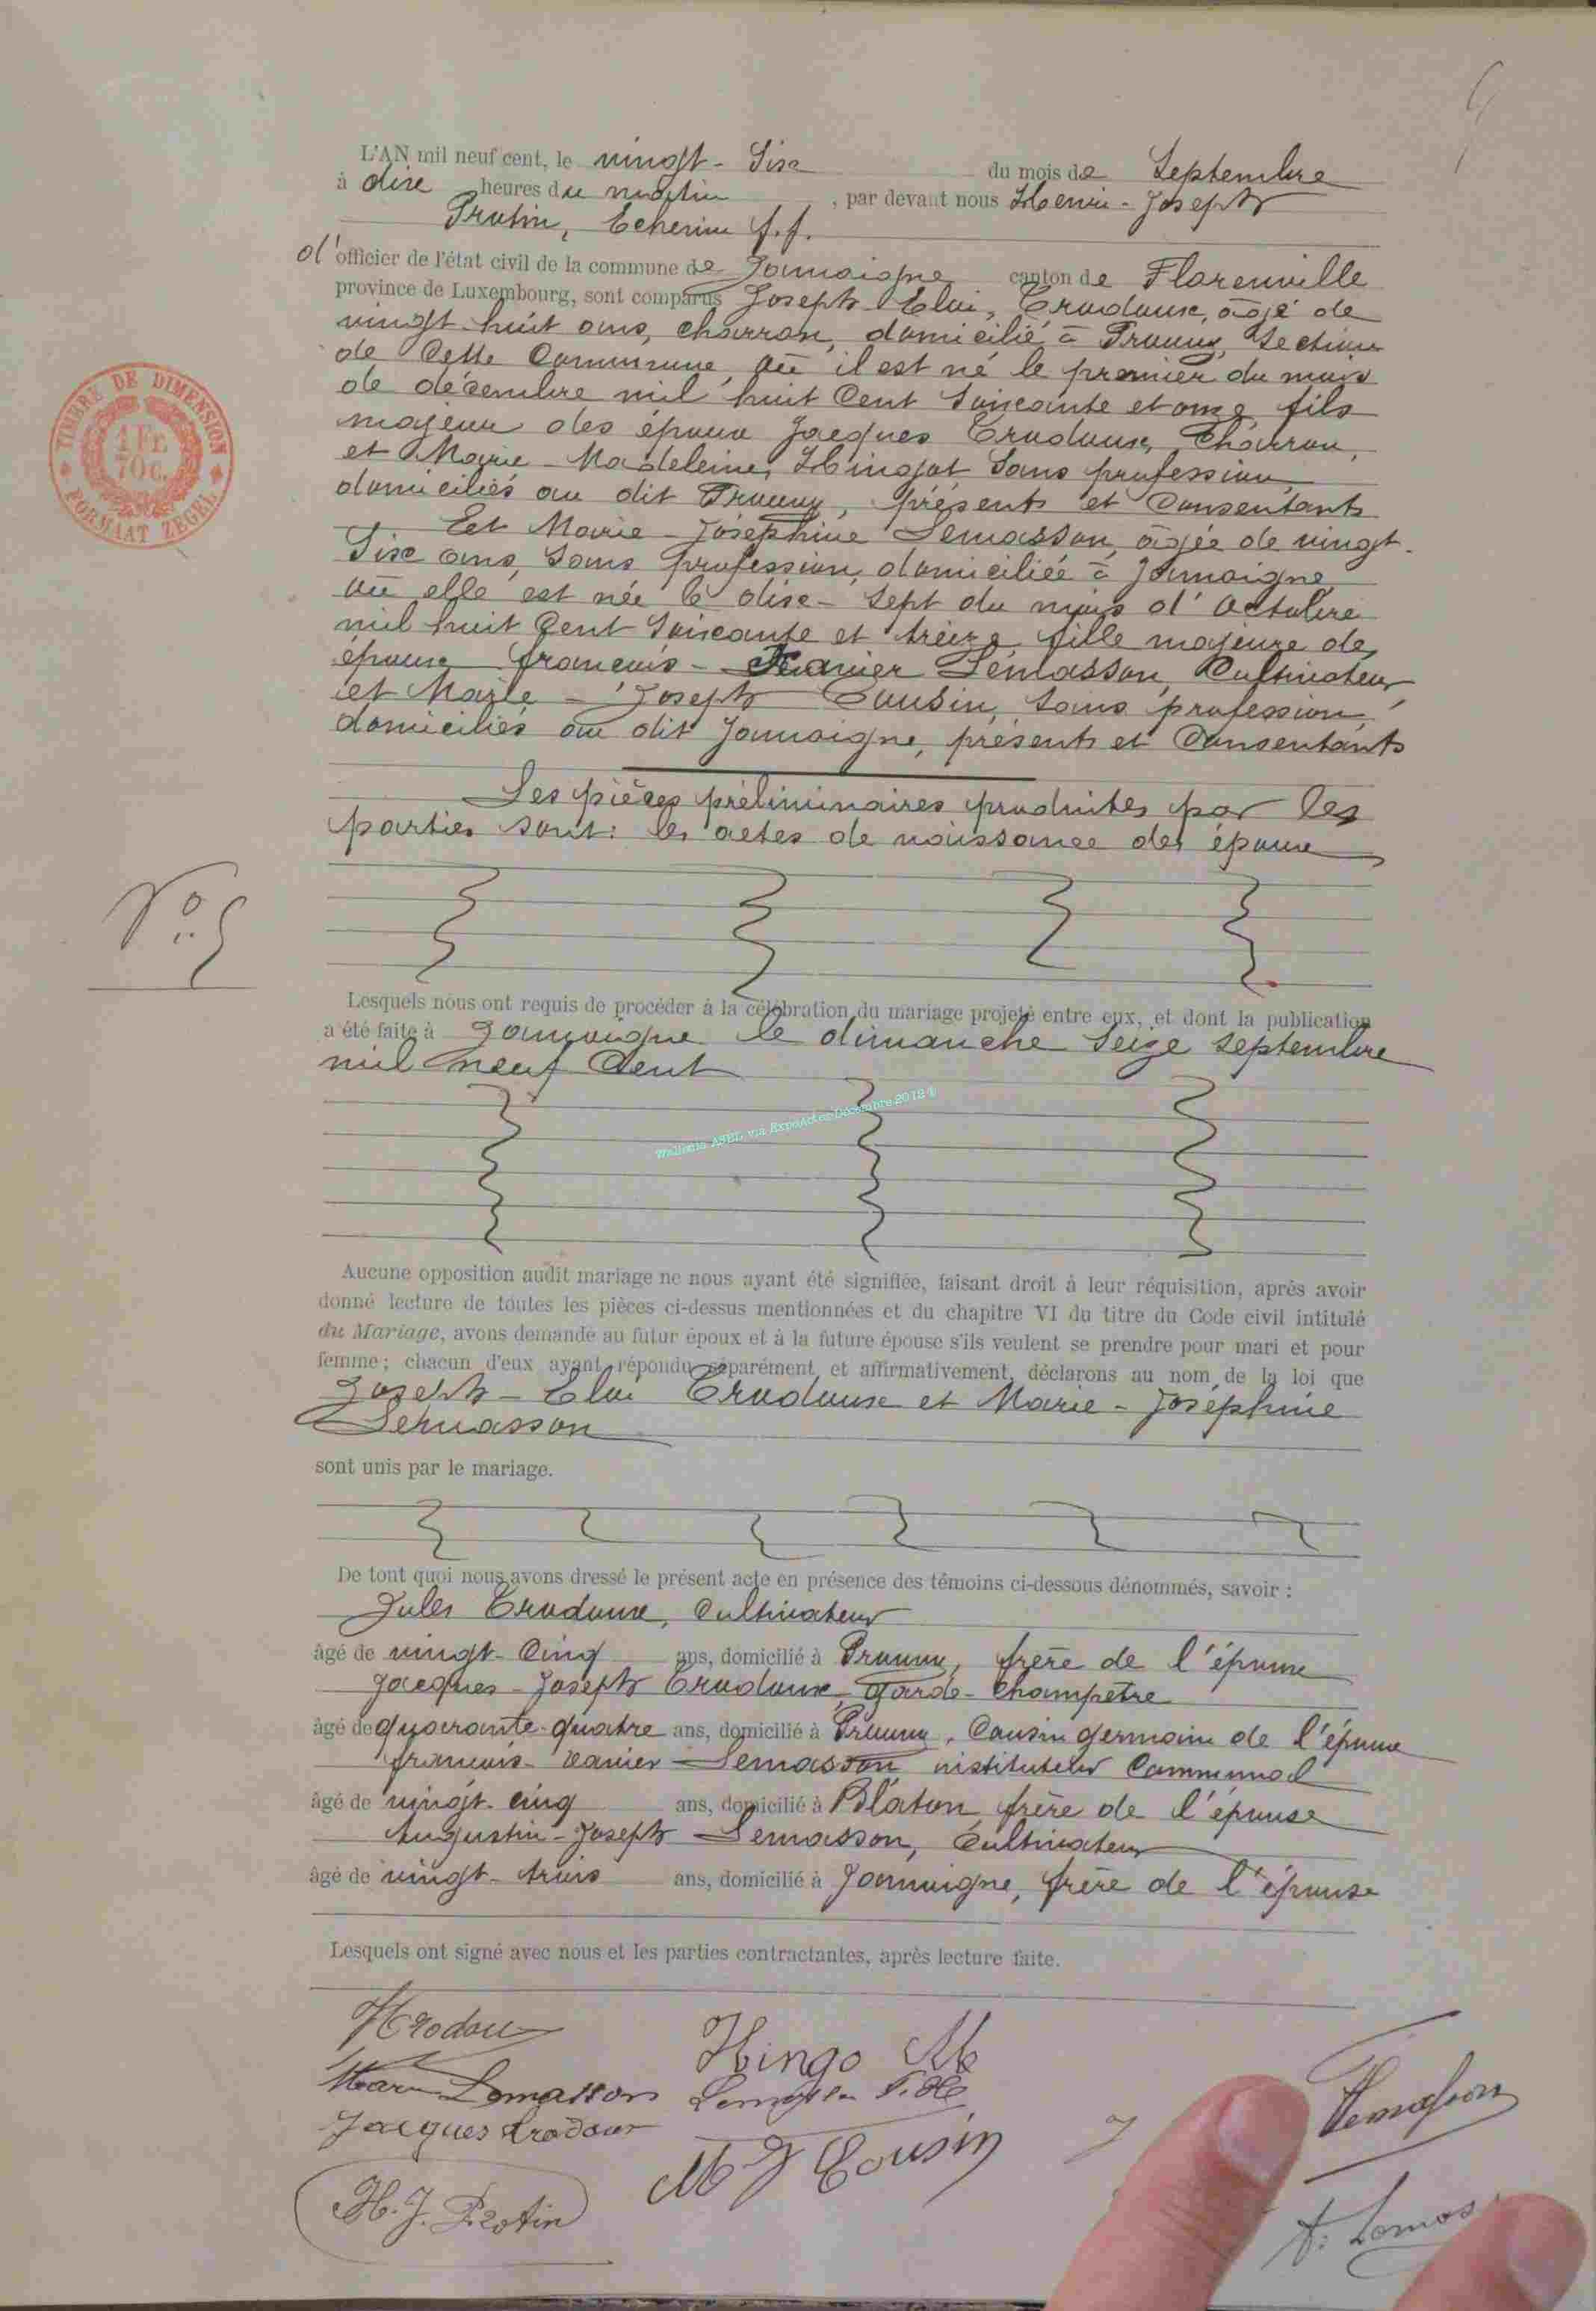 L'AN mil neuf cent, le vingt-Six du mois de Septembre
à dix heures du matin, par devant nous Henri-Joseph
Protin, Echevin f.f.
d'officier de l'état civil de la commune de Jamoigne canton de Florenville
province de Luxembourg, sont comparus Joseph-Eloi, Trodoux, âgé de
vingt-huit ans, charron, domicilié à Prouvy, Section
de Cette Commune, où il est né le premier du mois
de décembre mil huit Cent Soixante et onze, fils
majeur des époux Jacques Trodoux, Charron,
et Marie-Madeleine, Hingot Sans profession,
domiciliés au dit Prouvy, présents et Consentants
Et Marie-Joséphine Lemasson, âgée de vingt-
Six ans, Sans profession, domiciliée à Jamoigne,
où elle est née le dix-Sept du mois d'Octobre
mil huit Cent Soixante et treize, fille majeure des
époux François-Xavier Lemasson, Cultivateur,
et Marie-Joseph Cousin, Sans profession,
domiciliés au dit Jamoigne, présents et Consentants
Les pièces préliminaires produites par les
parties sont: les actes de naissance des époux
TIMBRE DE DIMENSION
1 Fr.
70 C.
FORMAAT ZEGEL
N° 5
Lesquels nous ont requis de procéder à la célébration du mariage projeté entre eux, et dont la publication
a été faite à Jamoigne le dimanche Seize Septembre
mil neuf Cent
Wallonia ASBL via ExpoActes Décembre 2012 ©
Aucune opposition audit mariage ne nous ayant été signifiée, faisant droit à leur réquisition, après avoir
donné lecture de toutes les pièces ci-dessus mentionnées et du chapitre VI du titre du Code civil intitulé
du Mariage, avons demandé au futur époux et à la future épouse s'ils veulent se prendre pour mari et pour
femme; chacun d'eux ayant répondu séparément et affirmativement, déclarons au nom de la loi que
Joseph-Eloi Trodoux et Marie-Joséphine
Lemasson
sont unis par le mariage.
De tout quoi nous avons dressé le présent acte en présence des témoins ci-dessous dénommés, savoir :
Jules Trodoux, Cultivateur
âgé de vingt-Cinq ans, domicilié à Prouvy, frère de l'époux
Jacques-Joseph Trodoux, Garde-Champêtre
âgé de quarante-quatre ans, domicilié à Prouvy, Cousin germain de l'époux
François-Xavier Lemasson instituteur Communal
âgé de vingt-cinq ans, domicilié à Blaton, frère de l'épouse
Augustin-Joseph Lemasson, Cultivateur
âgé de vingt-trois ans, domicilié à Jamoigne, frère de l'épouse
Lesquels ont signé avec nous et les parties contractantes, après lecture faite.
Hingo M
Lemasson
Jacques Trodoux
M J Cousin
Lemasson
H. J. Protin
A. Lemas